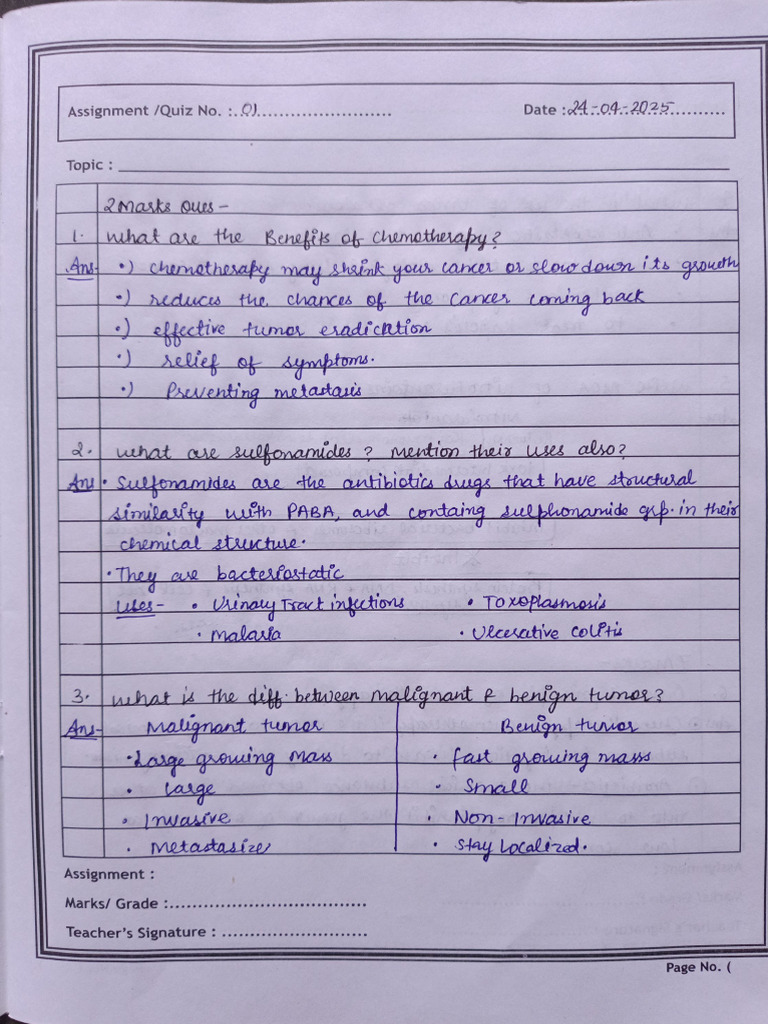 Assignment /Quiz No. : 01
Date : 24-04-2025
Topic :
2 Marks Ques -
1. What are the Benefits of Chemotherapy?
Ans- •) Chemotherapy may shrink your cancer or slow down its growth
•) reduces the chances of the Cancer coming back
•) effective tumor eradication
•) relief of symptoms.
•) Preventing metastasis
2. What are sulfonamides ? Mention their uses also?
Ans • Sulfonamides are the antibiotics drugs that have structural
similarity with PABA, and containg sulphonamide grp. in their
chemical structure.
• They are bacteriostatic
Uses- • Urinary Tract infections • Toxoplasmosis
• Malaria • Ulcerative Colitis
3. What is the diff. between malignant & benign tumor?
Ans- Malignant tumor Benign tumor
• Large growing mass • Fast growing mass
• Large • Small
• Invasive • Non-Invasive
• Metastasize • Stay Localized.
Assignment :
Marks/ Grade :
Teacher's Signature :
Page No. (